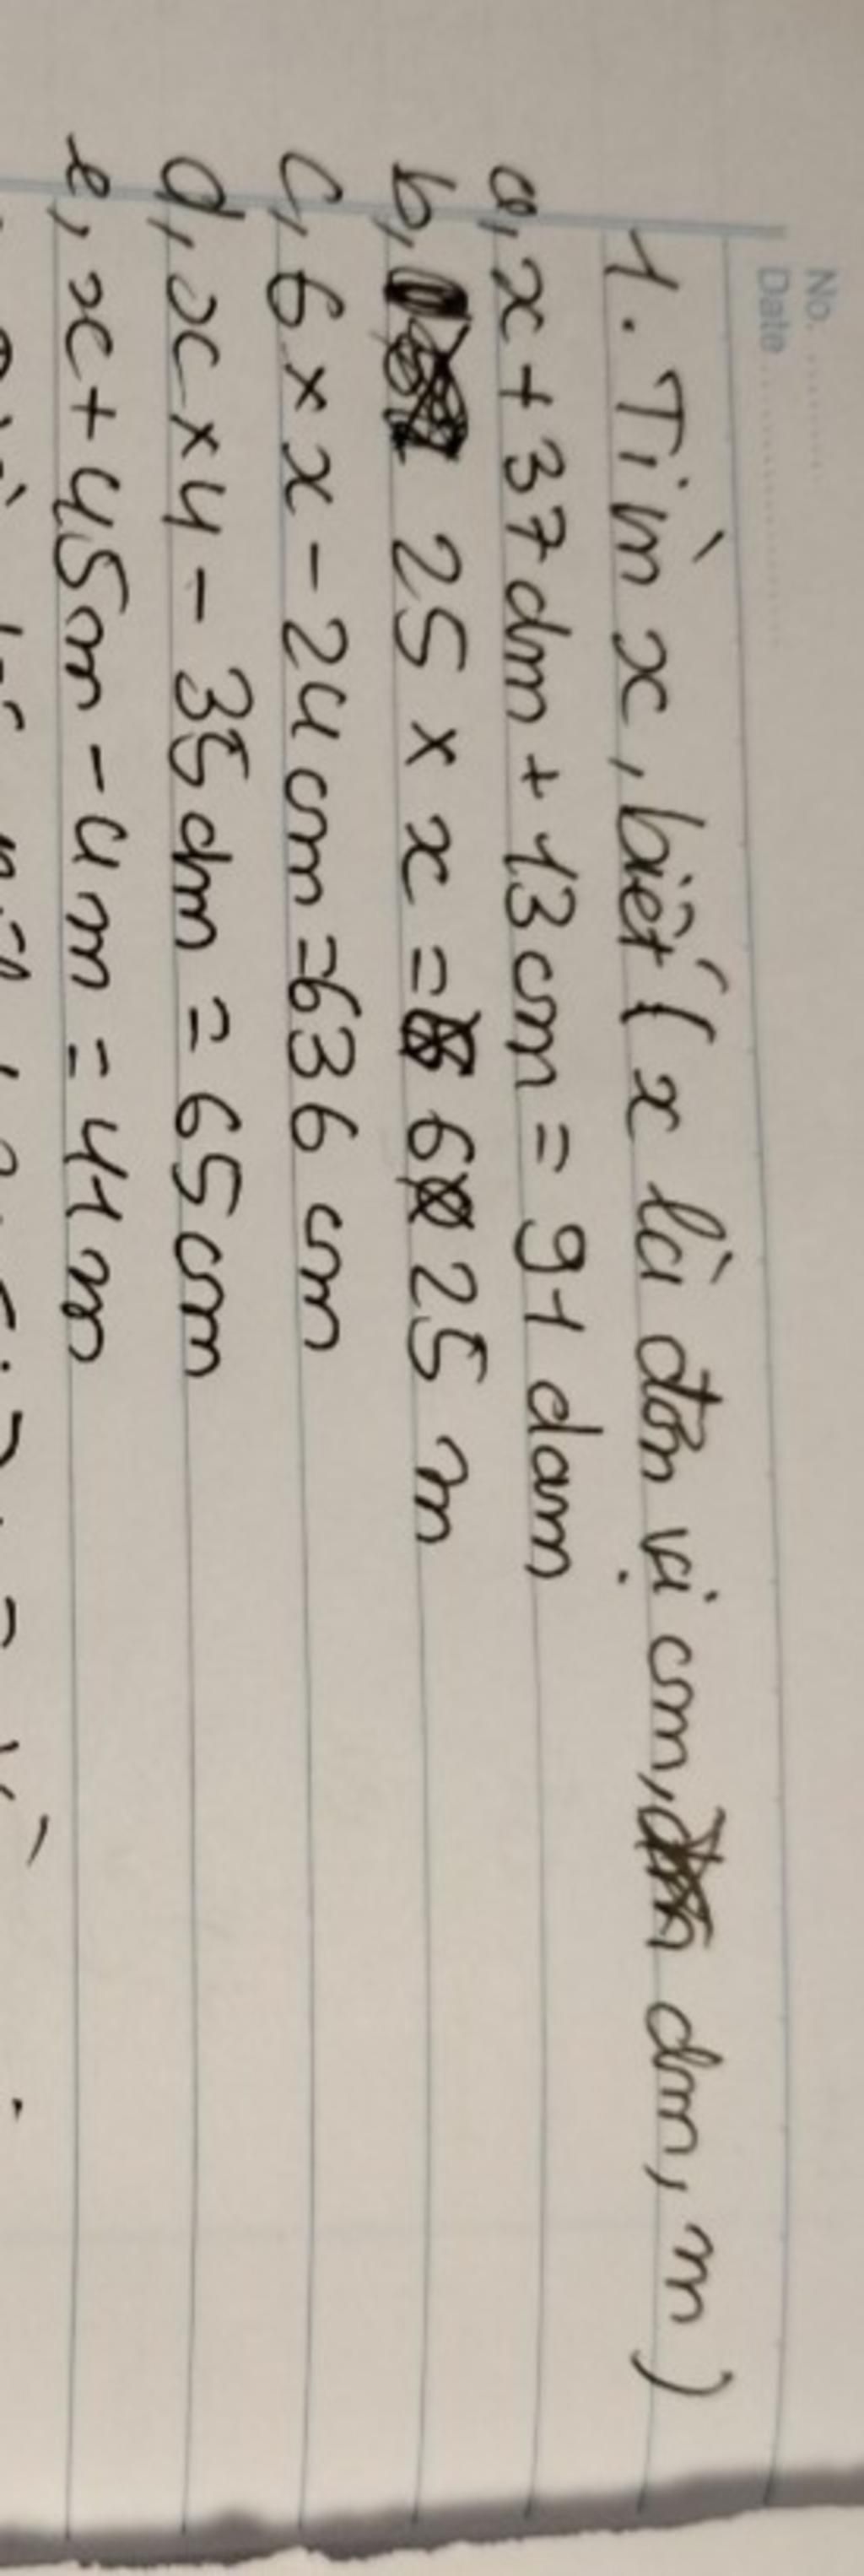 No. ............
Date ....................
1. Tìm x, biết ( x là đơn vị cm, dm, m )
a, x + 37 dm + 13 cm = 91 dam
b, 25 x x = 6 25 m
c, 6 x x - 24 cm = 636 cm
d, x x 4 - 35 dm = 65 cm
e, x + 45m - 4m = 41 m